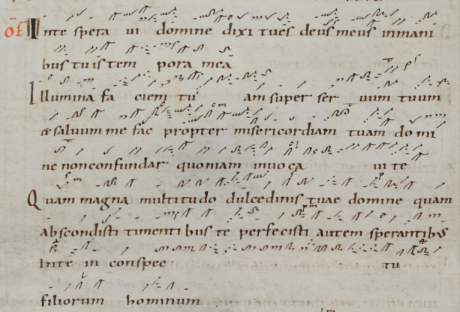 OF IN te spera ui domine dixi tu es deus meus in mani
bus tuis tem pora mea
Illumina fa ciem tu am super ser uum tuum
& saluum me fac propter misericordiam tuam domi
ne non confundar quoniam inuoca ui te
Quam magna multitudo dulcedinis tuae domine quam
abscondisti timentibus te perfecisti autem sperantibus
inte in conspec tu
filiorum hominum